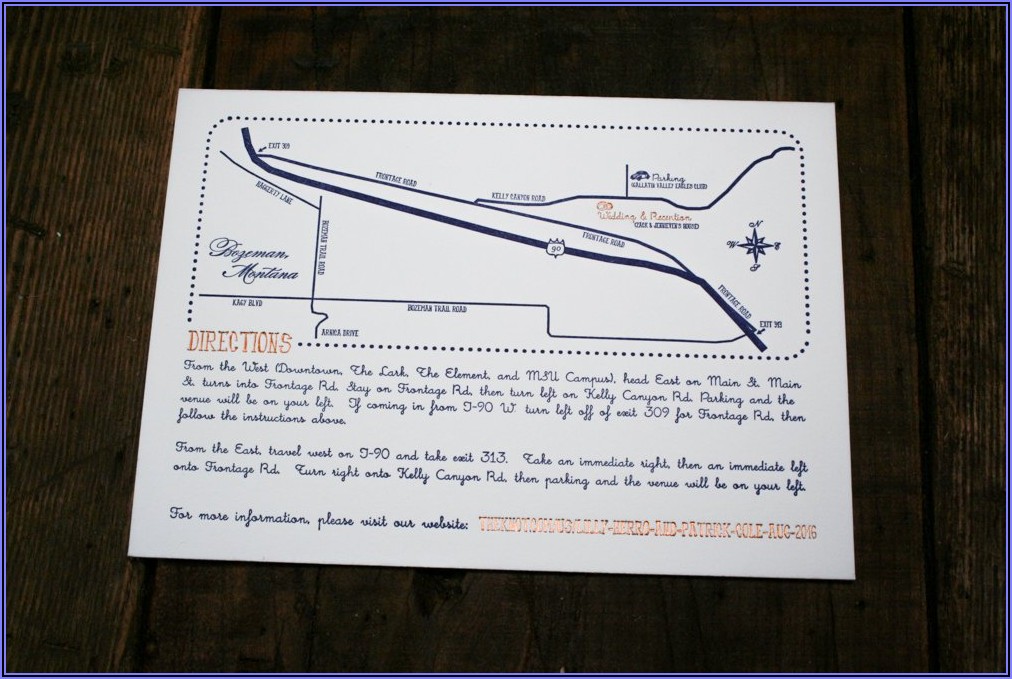 EXIT 309
FRONTAGE ROAD
HAGGERTY LANE
KELLY CANYON ROAD
Parking
(GALLATIN VALLEY EAGLES CLUB)
Wedding & Reception
HOUSE)
BOZEMAN TRAIL ROAD
FRONTAGE ROAD
90
N
W
E
S
Bozeman,
Montana
FRONTAGE ROAD
KAGY BLVD
BOZEMAN TRAIL ROAD
EXIT 313
ARNICA DRIVE
DIRECTIONS
From the West (Downtown, The Lark, The Element, and MSU Campus), head East on Main St. Main
St. turns into Frontage Rd. Stay on Frontage Rd, then turn left on Kelly Canyon Rd. Parking and the
venue will be on your left. If coming in from I-90 W turn left off of exit 309 for Frontage Rd, then
follow the instructions above.
From the East, travel west on I-90 and take exit 313. Take an immediate right, then an immediate left
onto Frontage Rd. Turn right onto Kelly Canyon Rd, then parking and the venue will be on your left.
For more information, please visit our website: THEKNOT.COM/US/LILLY-HERRO-AND-PATRICK-COLE-AUG-2016